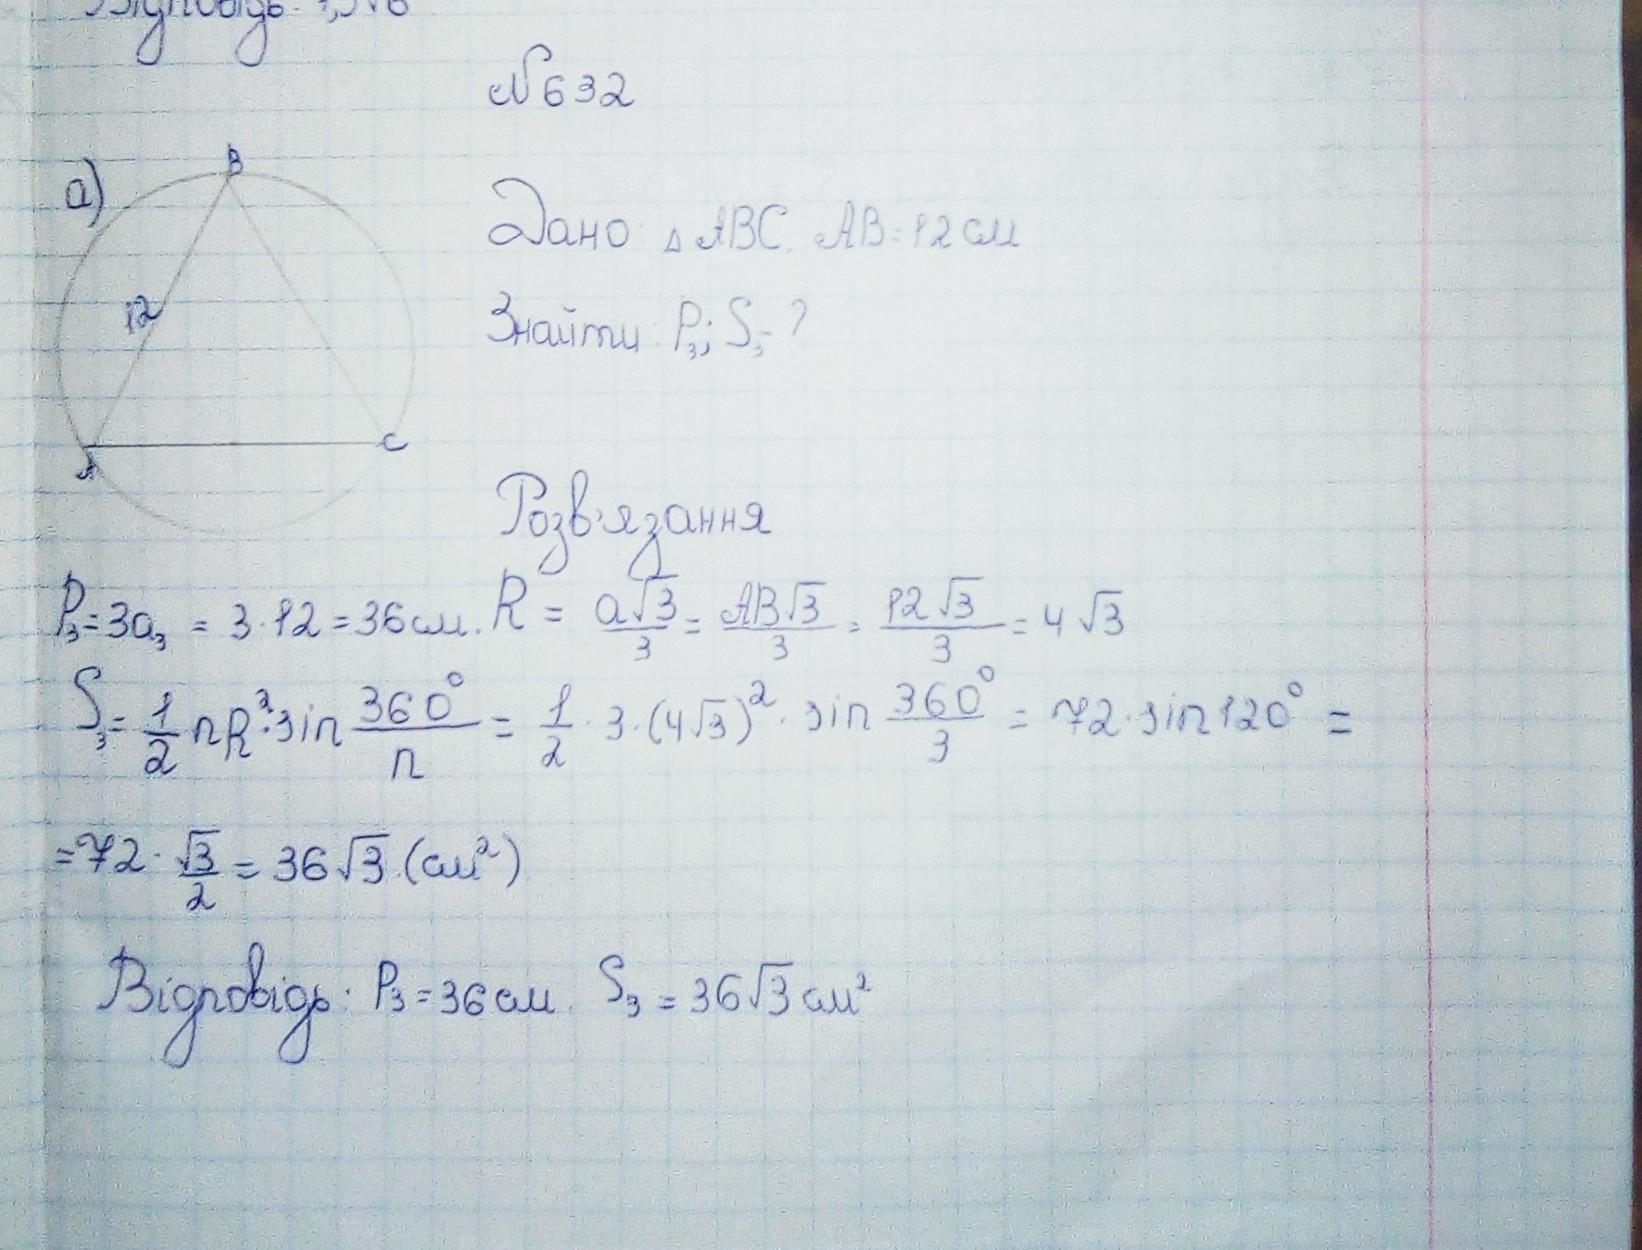 Відповідь:
№632
а)
B
Дано: △ABC. AB=12 см
12
Знайти: P₃; S₃-?
A
C
Розв'язання
P₃=3a₃ = 3·12=36 см. R = a√3/3 = AB√3/3 = 12√3/3 = 4√3
S₃= 1/2 nR²·sin 360°/n = 1/2 · 3·(4√3)² · sin 360°/3 = 72·sin120° =
=72· √3/2 = 36√3 (см²)
Відповідь: P₃=36 см. S₃ = 36√3 см²